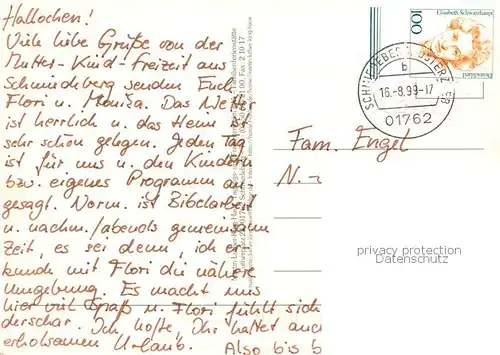 Hallochen!
Viele liebe Grüße von der
Mutter-Kind-freizeit aus
Schmiedeberg senden Euch
Flori u. Monica. Das Wetter
ist herrlich u. das Heim ist
sehr schön gelegen. Jeden Tag
ist für uns u. den Kindern
bzw. eigenes Programm an-
gesagt. Norm. ist Bibelarbeit
u. nachm./abends gemeinsame
Zeit, es sei denn, ich er-
kunde mit Flori die nähere
Umgebung. Es macht uns
hier viel Spaß u. Flori fühlt sich
Ich hoffe, Ihr hattet auch
erholsamen Urlaub. Also bis b
Elisabeth Schwarzhaupt
100
Deutschland
b
16.-8.99-17
01762
Fam. Engel
N.
privacy protection
Datenschutz